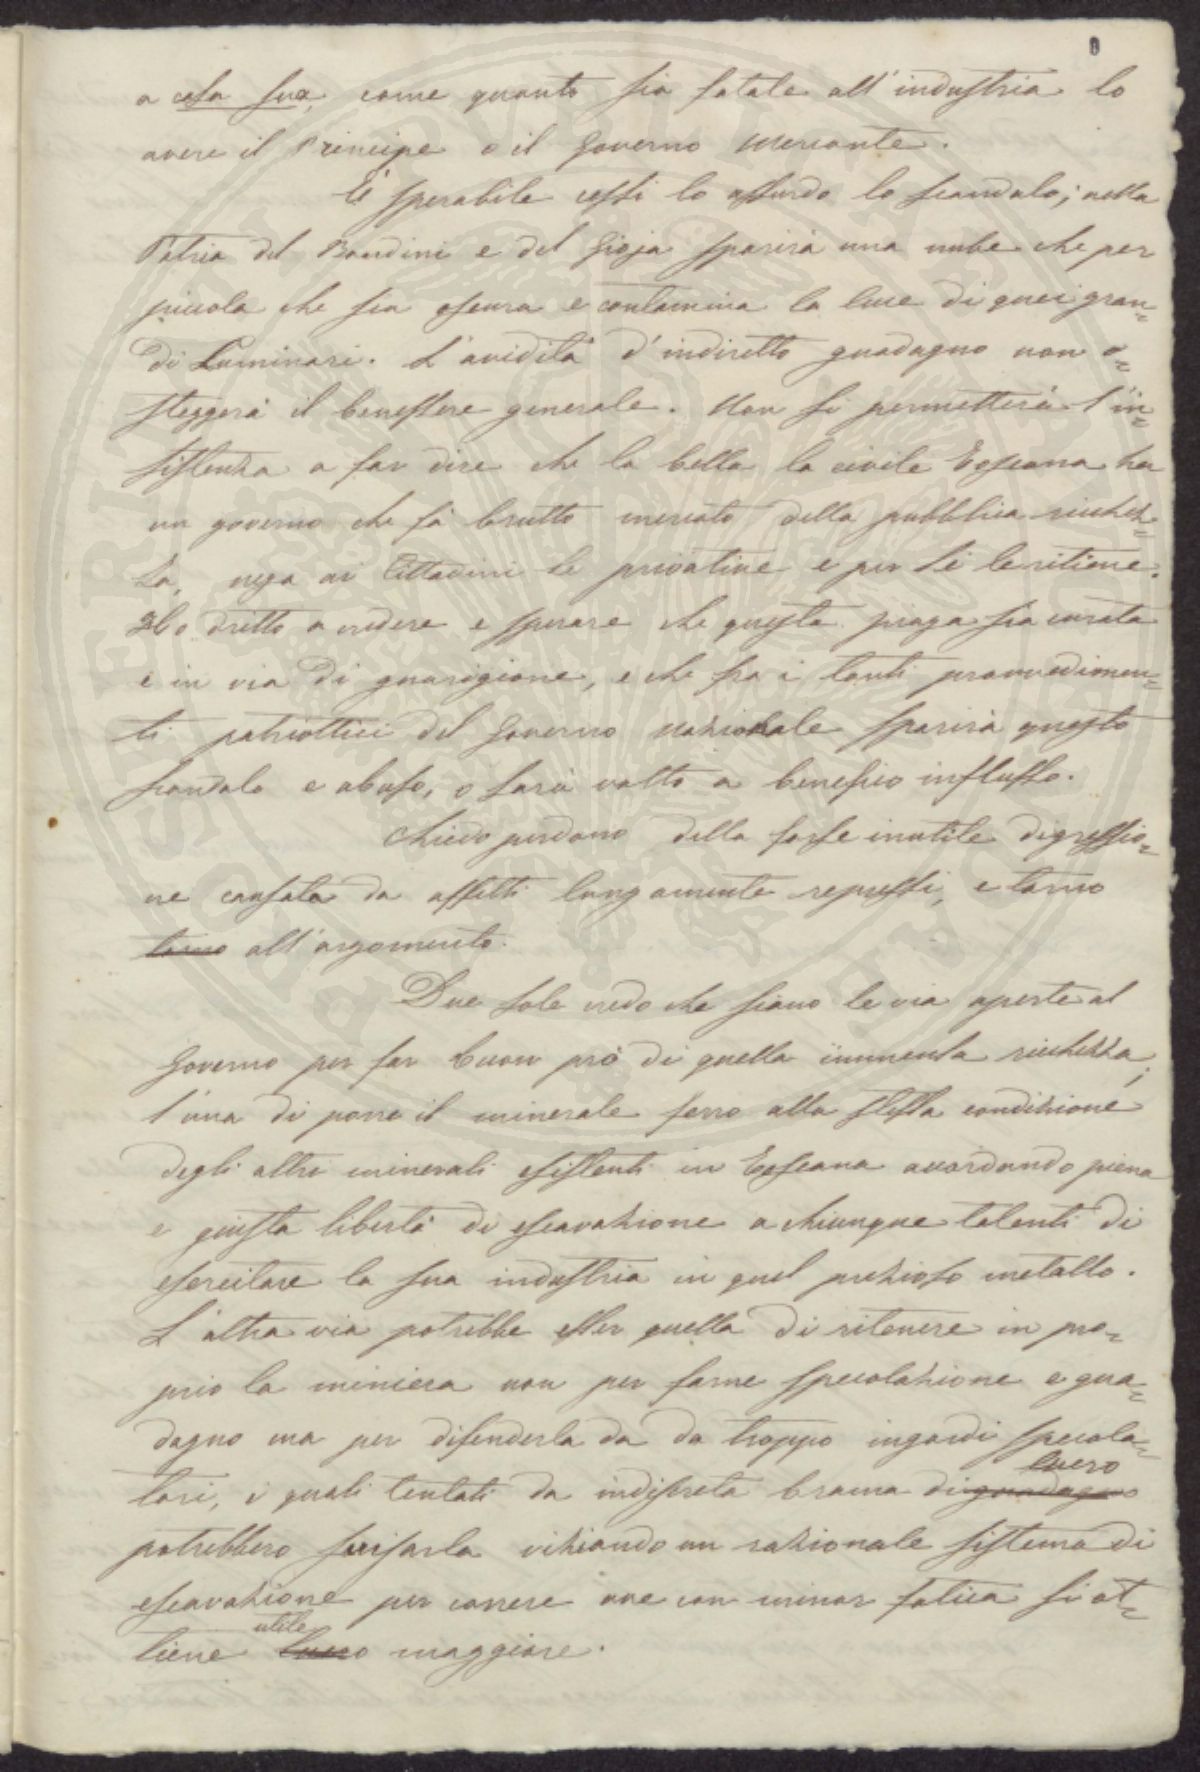 a casa sua, come quanto sia fatale all'industria lo
avere il Principe o il Governo mercante.
È sperabile cessi lo assurdo lo scandalo; nella
Patria del Bandini e del Gioja sparirà una nube che per
piccola che sia oscura e contamina la luce di quei gran=
di Luminari. L'avidità d'indiretto guadagno non o=
steggerà il benessere generale. Non si permetterà l'in=
sistenza a far dire che la bella la civile Toscana ha
un governo che fà brutto mercato della pubblica ricchez=
za, nega ai Cittadini le privative e per sé le ritiene.
Ho dritto a credere e sperare che questa piaga sia curata
e in via di guarigione, e che fra i tanti provvedimen=
ti patriottici del Governo Nazionale sparirà questo
scandalo e abuso, o sarà volto a benefico influsso.
Chiedo perdono della forse inutile digressio=
ne causata da affetti lungamente repressi, e torno
torno all'argomento.
Due sole credo che siano le via aperte al
Governo per far buon prò di quella immensa ricchezza;
l'una di porre il minerale ferro alla stessa condizione
degli altri minerali esistenti in Toscana accordando piena
e giusta libertà di escavazione a chiunque talenti di
esercitare la sua industria in quel prezioso metallo.
L'altra via potrebbe esser quella di ritenere in pro=
prio la miniera non per farne specolazione e gua=
dagno ma per difenderla da da troppo ingordi specola=
lucro
tori, i quali tentati da indiscreta brama di guadagno
potrebbero sciuparla viziando un razionale sistema di
escavazione per correre ove con minor fatica si ot=
utile
tiene lucro maggiore.